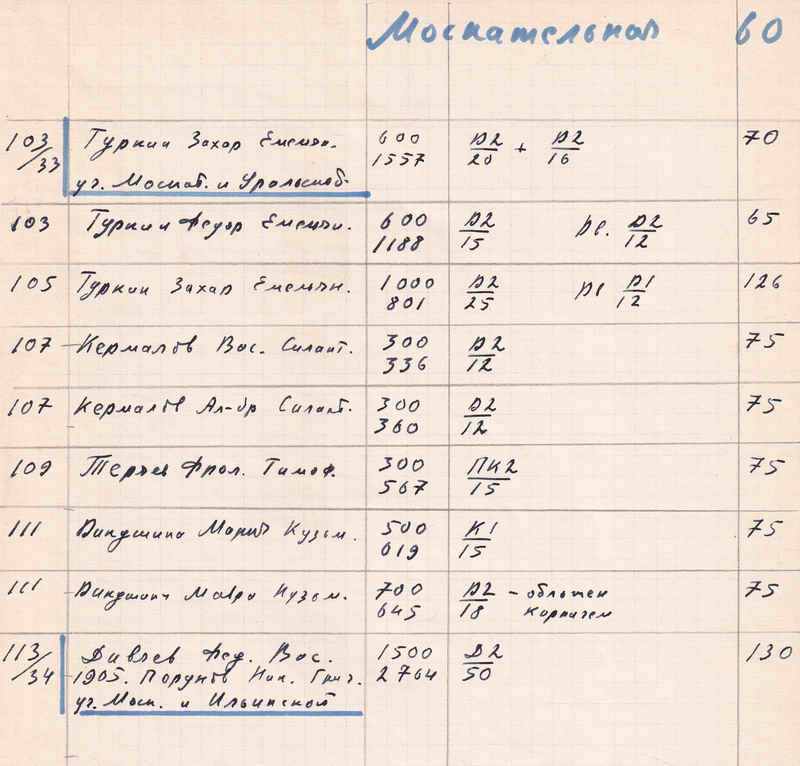 Москательная 60
103/33 Туркин Захар Емельян. 600 Д2/20 + Д2/16 70
1557
уг. Москат. и Уральской
103 Туркин Федор Емельян. 600 Д2/15 ре. Д2/12 65
1188
105 Туркин Захар Емельян. 1000 Д2/25 ре Д1/12 126
801
107 Кермалов Вас. Силант. 300 Д2/12 75
336
107 Кермалов Ал-др Силант. 300 Д2/12 75
360
109 Фрол. Тимоф. 300 ПК2/15 75
567
111 Мария Кузьм. 500 К1/15 75
619
111 Мавра Кузьм. 700 Д2/18 – обложен 75
645 кирпичем
113/34 Фед. Вас. 1500 Д2/50 130
1905. Порунов Ник. Григ. 2764
уг. Моск. и Ильинской